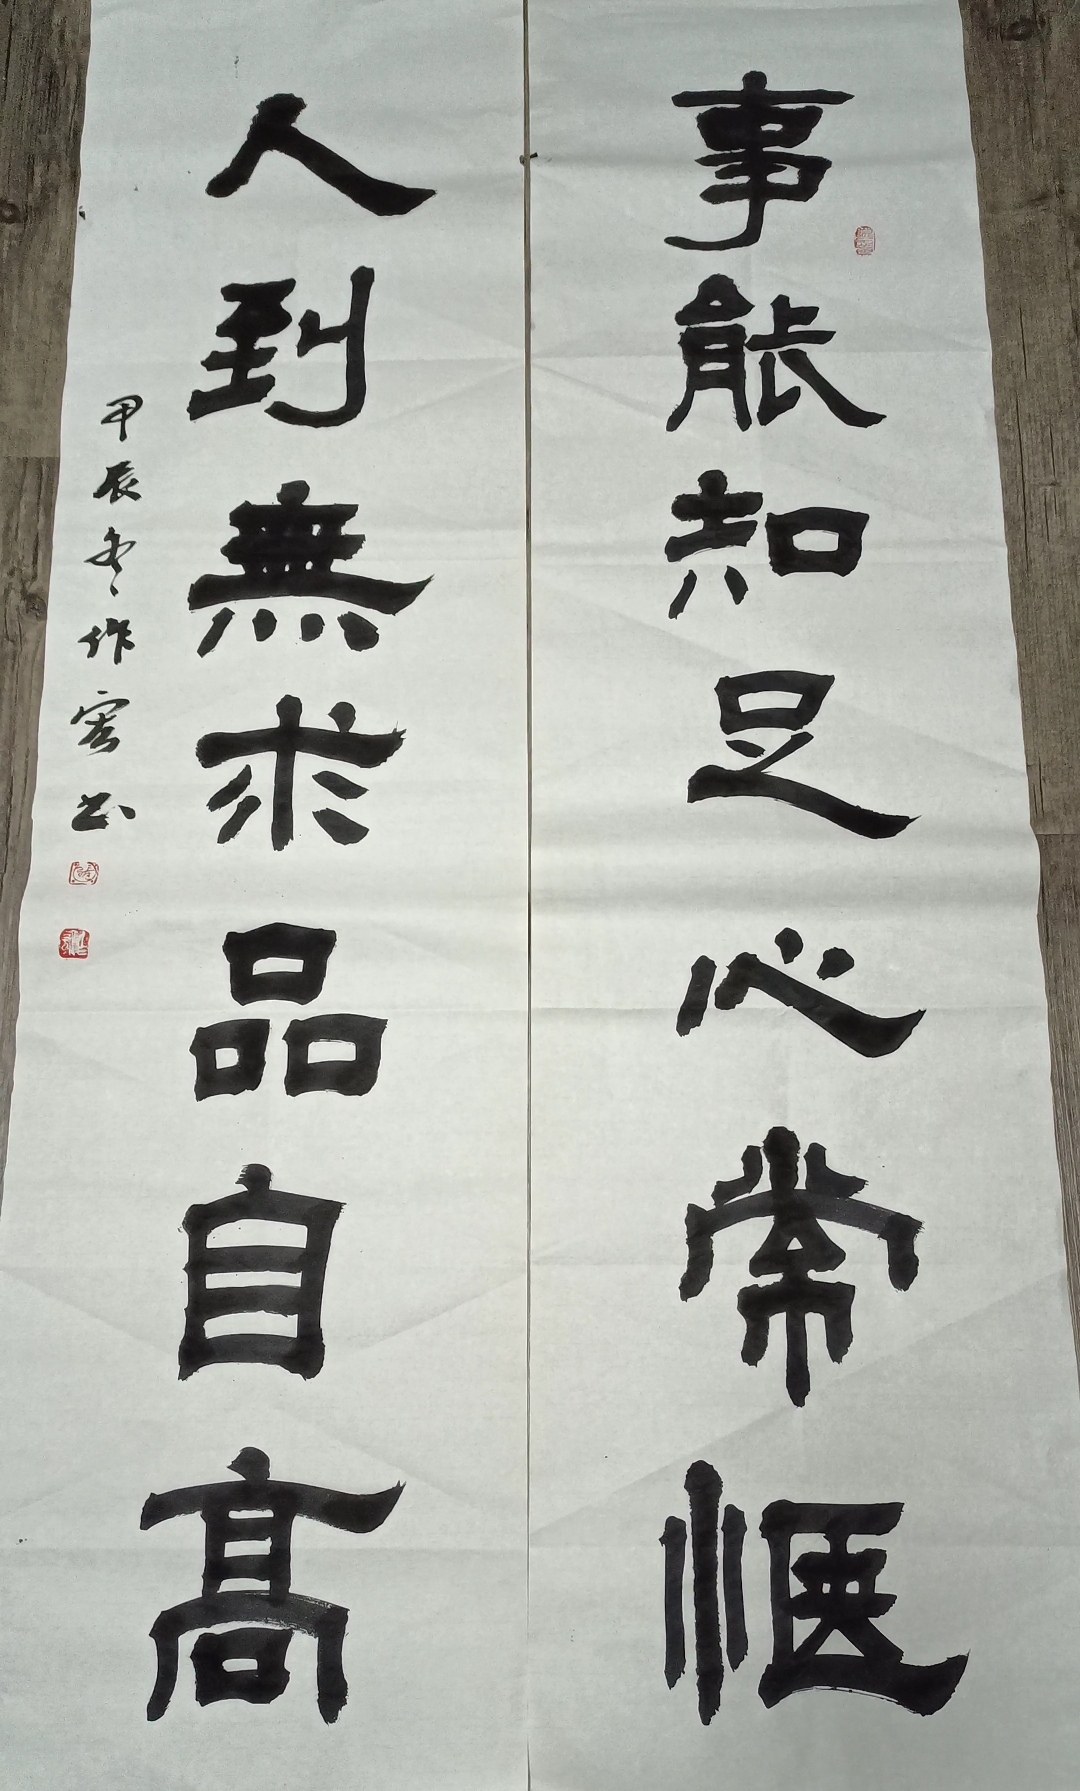 事能知足心常惬
人到無求品自高
甲辰冬作宏书